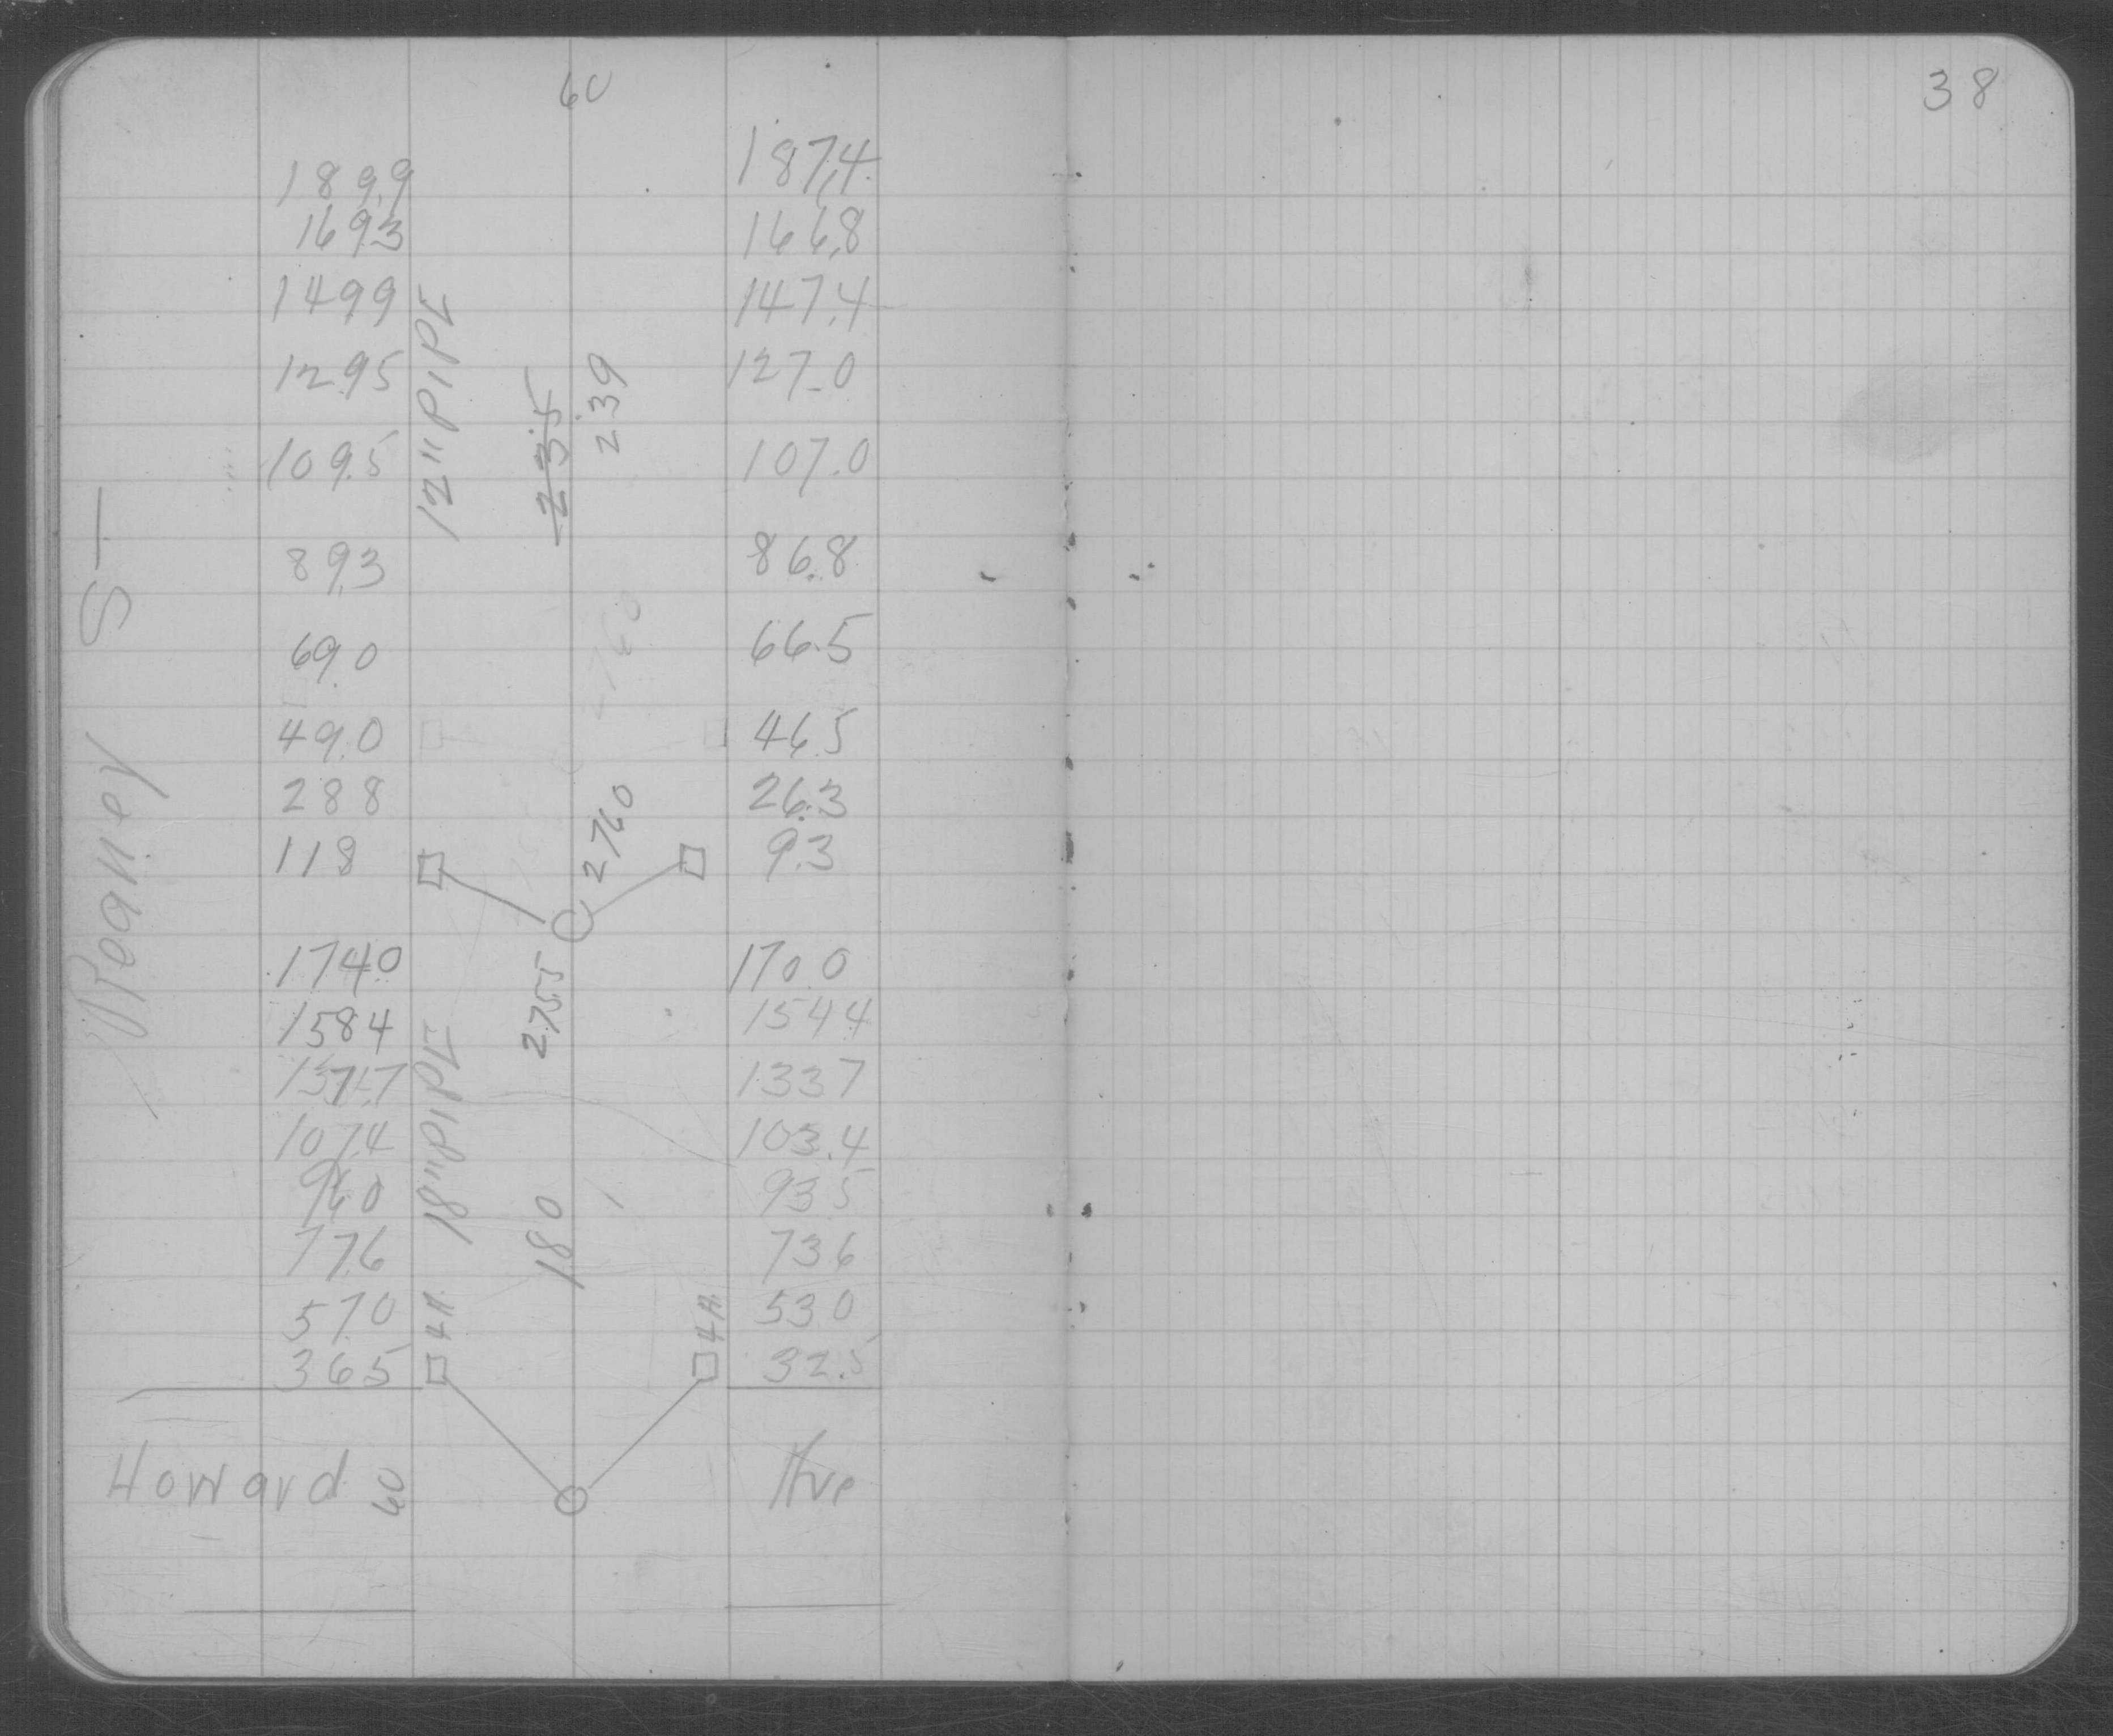 60
38
189.9 187.4
169.3 166.8
149.9 147.4
129.5 127.0
12" PIPE
235
239
109.5 107.0
89.3 86.8
69.0 66.5
2760
49.0 46.5
28.8 26.3
2760
11.8 9.3
St
174.0 170.0
2755
158.4 154.4
137.7 133.7
18" PIPE
107.4 103.4
96.0 93.5
180
77.6 73.6
57.0 53.0
4A 4A
36.5 32.5
Howard Ave
60